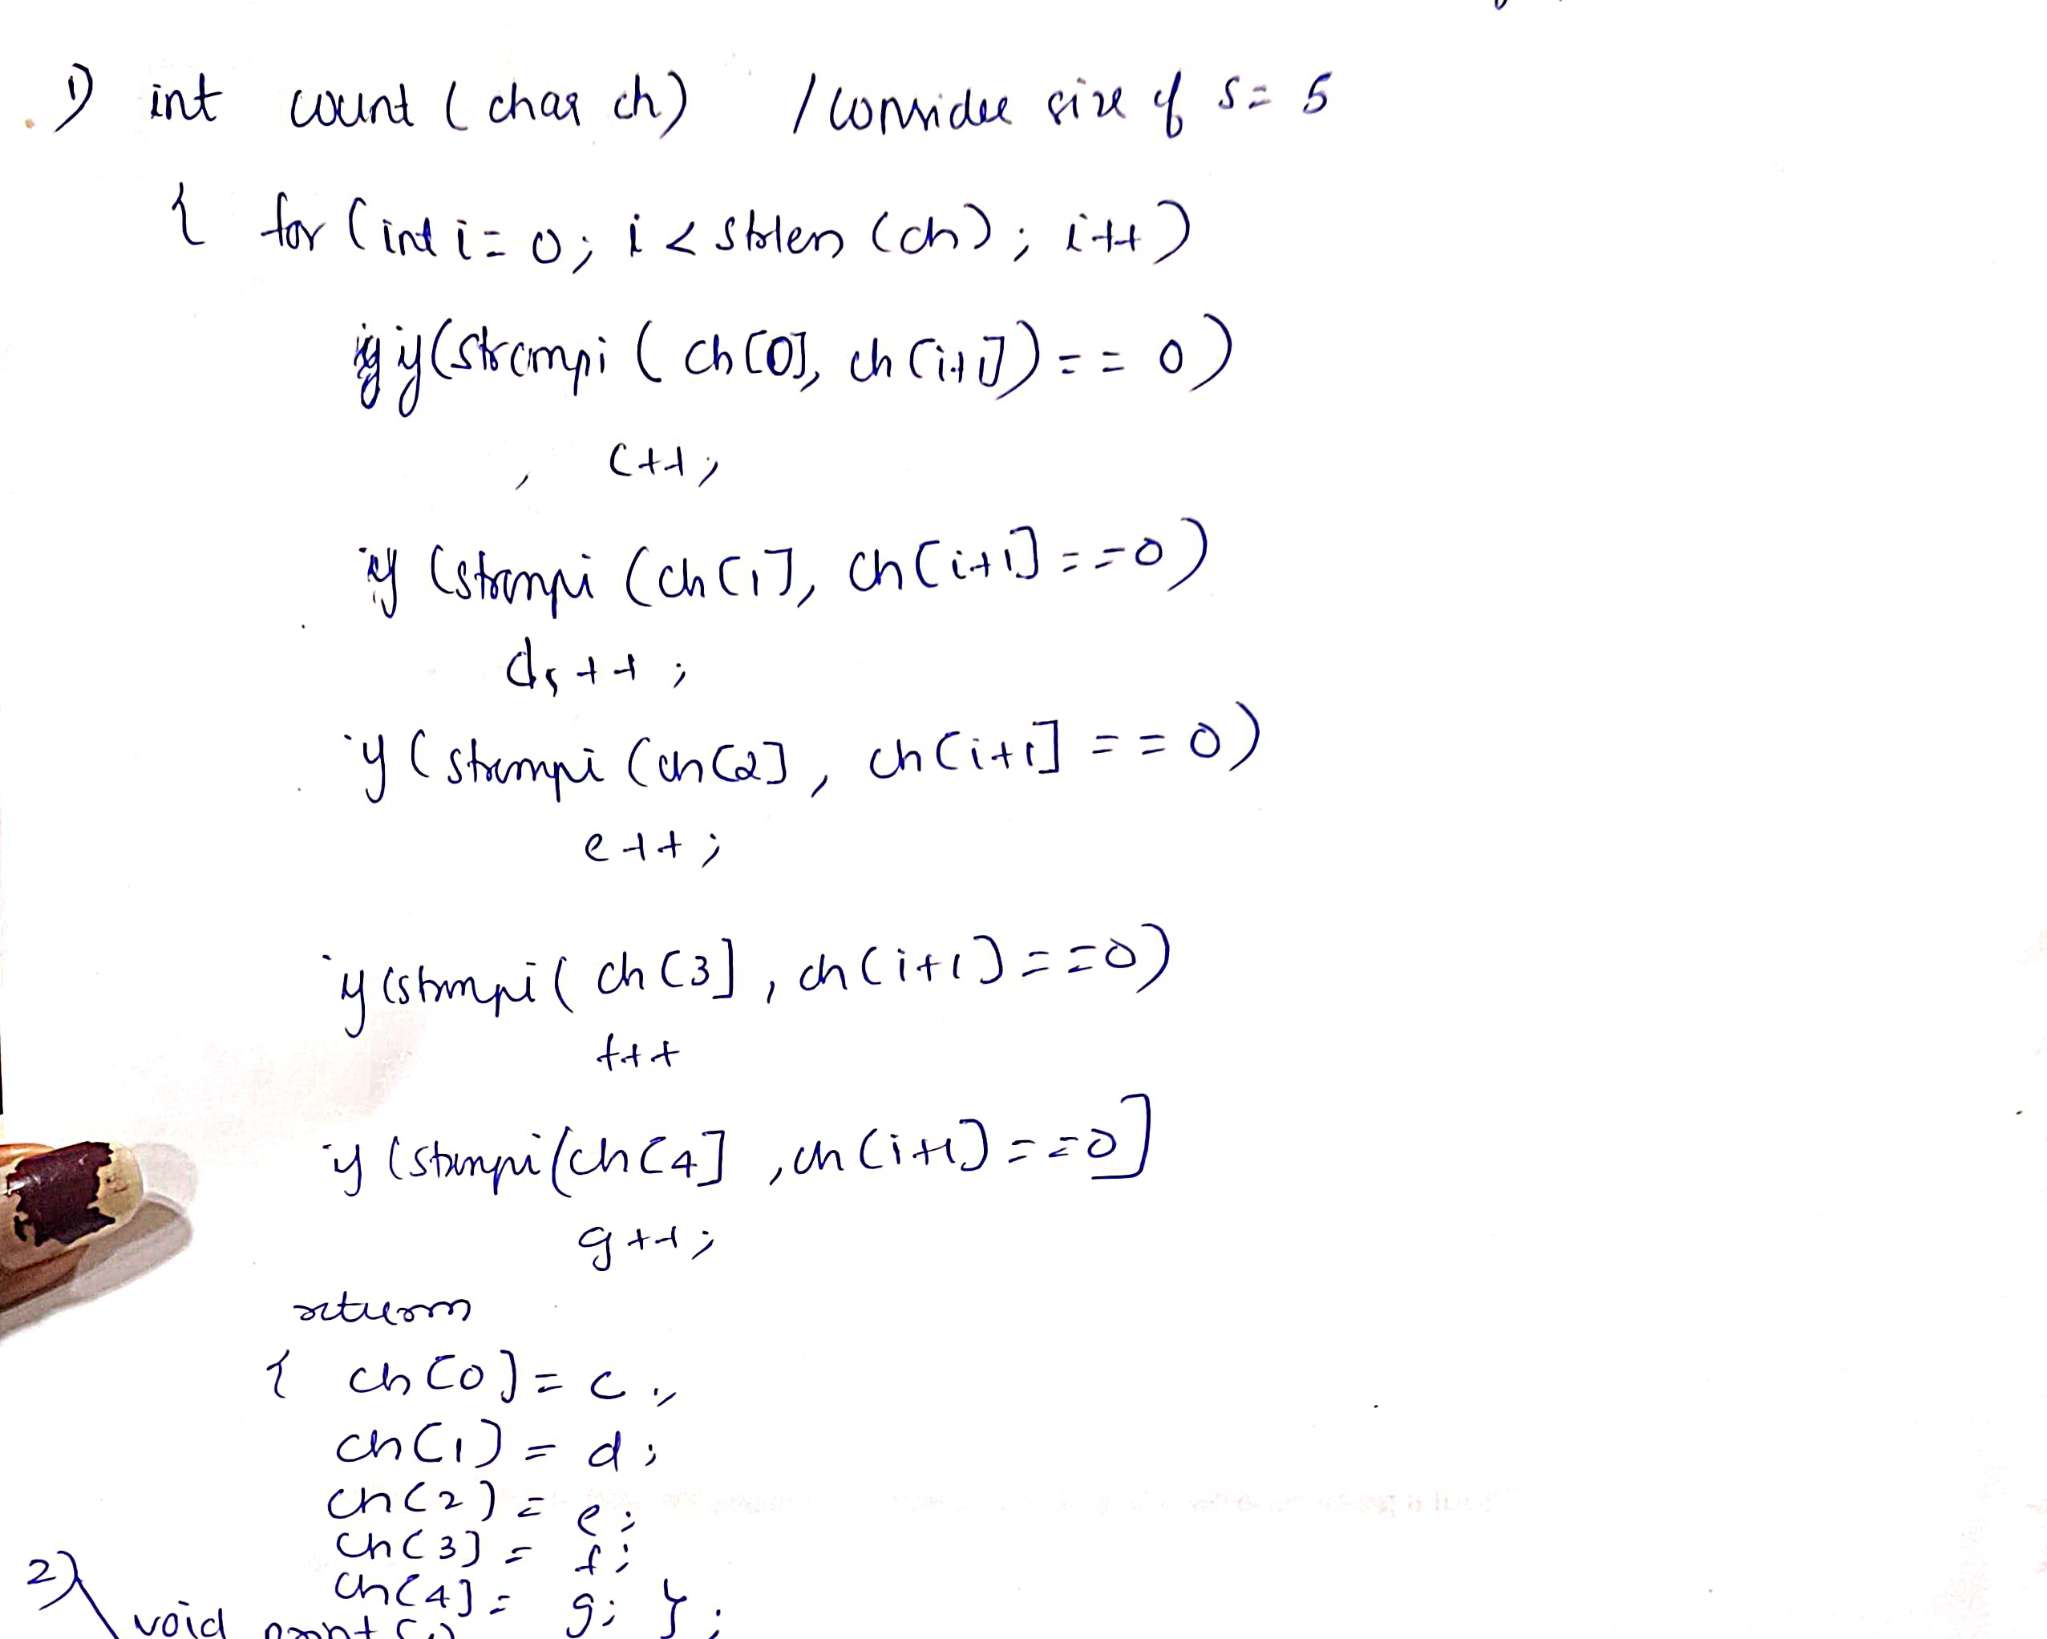 1) int count (char ch) / Consider size of s= 5
{ for (int i=0; i < strlen (ch); i++)
if (strcmpi (ch[0], ch[i+1]) == 0)
c++;
if (strcmpi (ch[1], ch[i+1] ==0)
d++;
if (strcmpi (ch[2], ch[i+1] ==0)
e++;
if (strcmpi (ch[3], ch[i+1] ==0)
f++
if (strcmpi (ch[4], ch[i+1] ==0]
g++;
return
{ ch[0] = c;
ch[1] = d;
ch[2] = e;
ch[3] = f;
ch[4] = g; };
2) void print ()